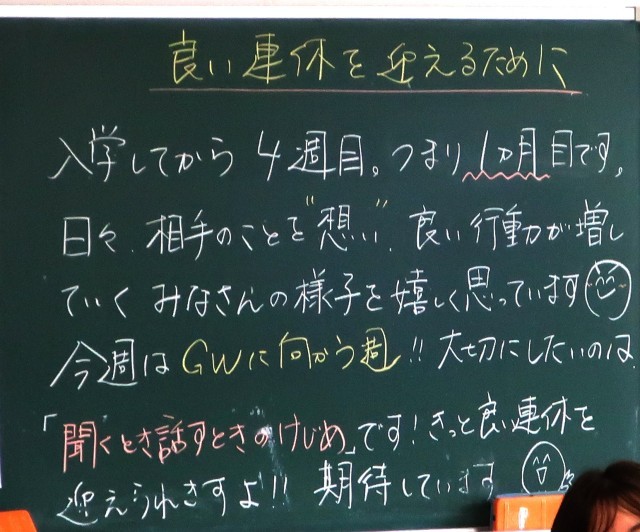 良い連休を迎えるために
入学してから4週目。つまり1ヵ月目です。
日々、相手のことを"想い"、良い行動が増し
ていくみなさんの様子を嬉しく思っています
今週はGWに向かう週!! 大切にしたいのは
「聞くとき話すときのけじめ」です!きっと良い連休を
迎えられますよ!! 期待しています